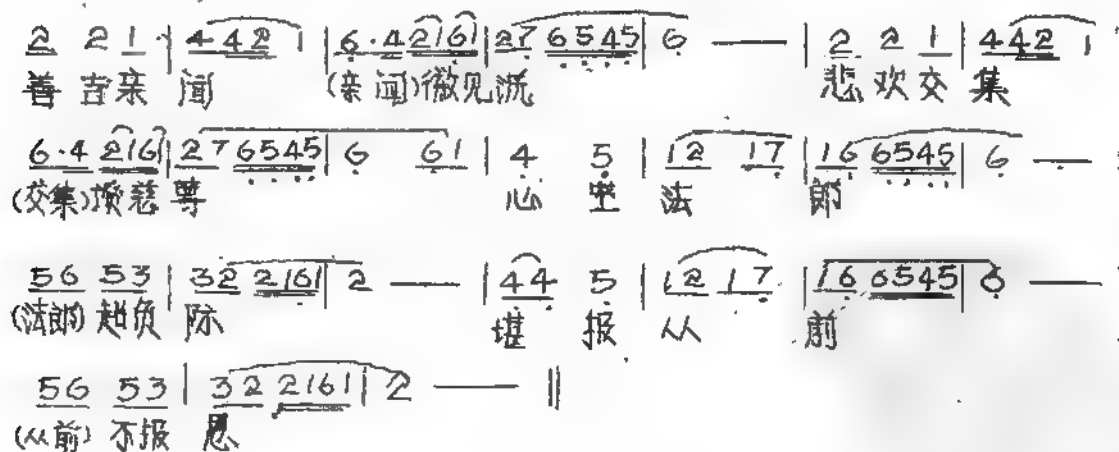 2 2 1 | 4 4 2 1 | 6·4 2161 | 27 6545 | 6 — | 2 2 1 | 4 4 2 1 |
善吉亲 闻 (亲闻)徵见 悲欢交 集
6·4 2161 | 27 6545 | 6 61 | 4 5 | 12 17 | 16 6545 | 6 —
(交集) 慈尊 心 法 郎
56 53 | 32 2161 | 2 — | 44 5 | 12 17 | 16 6545 | 6 —
(法郎) 负 际 堪 报 从 前
56 53 | 32 2161 | 2 — ‖
(从前) 不报 恩